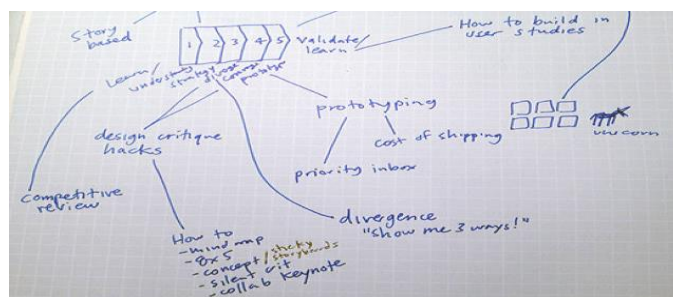 Story
based
1 2 3 4 5
validate/
learn
How to build in
user studies
Learn/
understand
strategy
diverge
converge
prototype
prototyping
cost of shipping
unicorn
design critique
hacks
priority inbox
competitive
review
divergence
"show me 3 ways!"
How to
- mind map
- 8x5
- concept/sticky
storyboards
- silent crit
- collab keynote